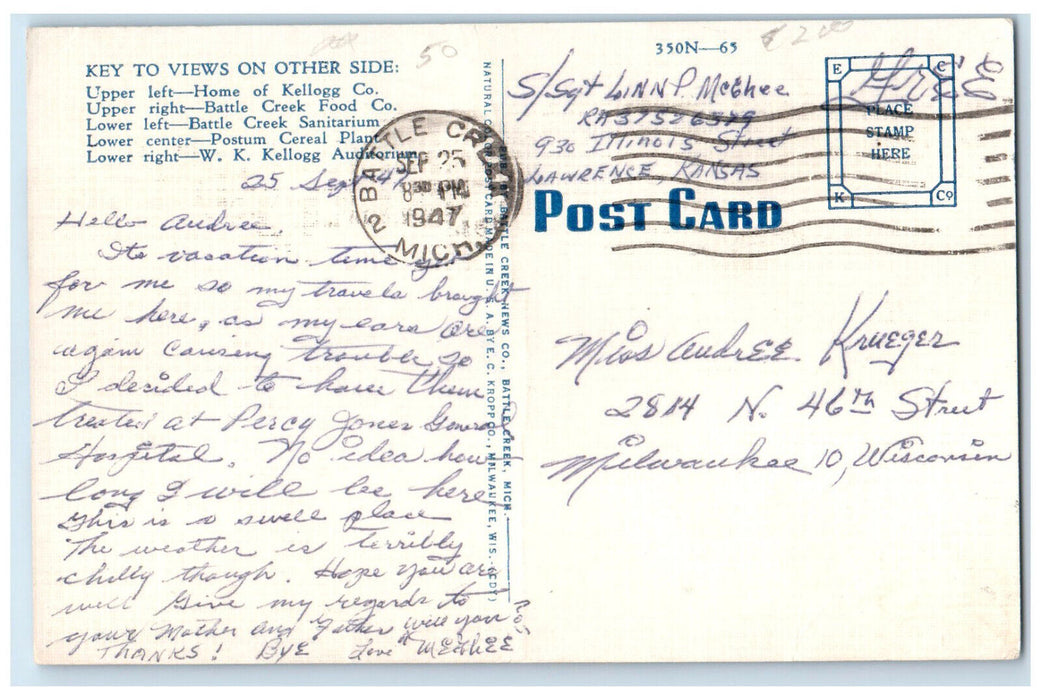 50
$2.00
350N—65
KEY TO VIEWS ON OTHER SIDE:
Upper left—Home of Kellogg Co.
Upper right—Battle Creek Food Co.
Lower left—Battle Creek Sanitarium
Lower center—Postum Cereal Plant
Lower right—W. K. Kellogg Auditorium
25 Sept 47
Hello Audree,
Its vacation time
for me so my travels brought
me here, as my ears are
again causing trouble so
I decided to have them
treated at Percy Jones General
Hospital. No idea how
long I will be here,
This is a swell place
The weather is terribly
chilly though. Hope you are
well Give my regards to
your Mother and Father will you
THANKS! BYE Love "McGHEE
BATTLE CREEK
2
SEP 25
8 30 PM
1947
MICH.
NATURAL COLOR POST CARD MADE IN U. S. A. BY E. C. KROPP CO., MILWAUKEE, WIS.
BATTLE CREEK NEWS CO., BATTLE CREEK, MICH.
S/Sgt LINN P. McGhee
RA 37526379
930 Illinois Street
LAWRENCE, KANSAS
Free
E C
PLACE
STAMP
HERE
K Co
POST CARD
Miss Audree Krueger
2814 N. 46th Street
Milwaukee 10, Wisconsin